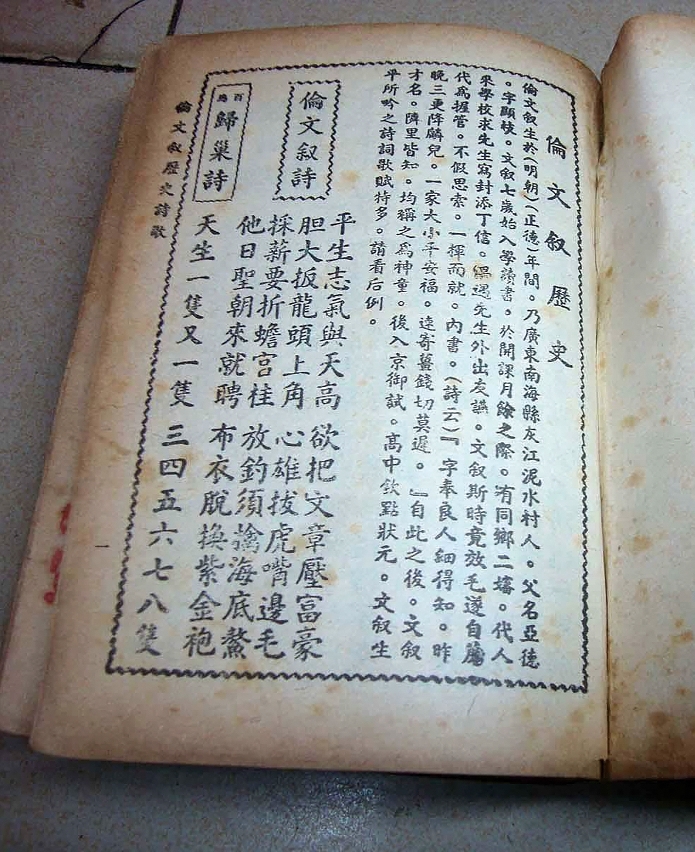 倫文叙歷史
倫文叙生於(明朝)(正德)年間。乃廣東南海縣灰江泥水村人。父名亞德
。字顯枝。文叙七歲始入學讀書。於開課月餘之際。有同鄉二嬸。代人
來學校求先生寫封添丁信。偶遇先生外出友讌。文叙斯時竟效毛遂自薦
代為握管。不假思索。一揮而就。內書。(詩云)『字奉良人細得知。昨
晚三更降麟兒。一家大小千安福。速寄薑錢切莫遲。』自此之後。文叙
才名。隣里皆知。均稱之為神童。後入京御試。高中欽點狀元。文叙生
平所吟之詩詞歌賦特多。請看后例。
倫文叙詩
平生志氣與天高 欲把文章壓富豪
胆大扳龍頭上角 心雄拔虎嘴邊毛
採薪要折蟾宮桂 放釣須擒海底鰲
他日聖朝來就聘 布衣脫換紫金袍
百鳥歸巢詩
天生一隻又一隻 三四五六七八隻
倫文叙歷史詩歌
一